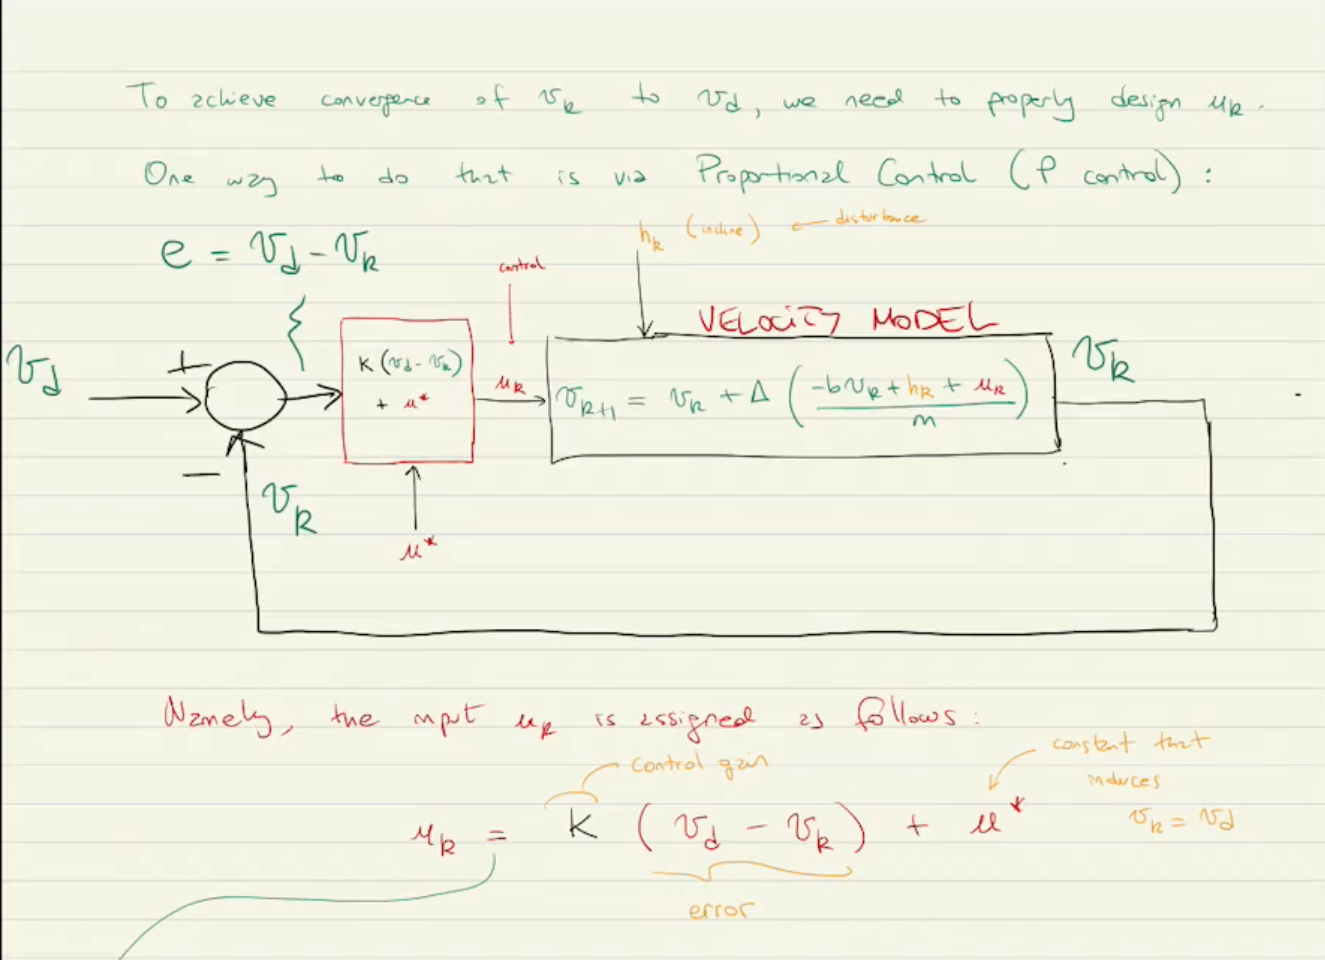 To achieve convergence of v_k to v_d, we need to properly design u_k.
One way to do that is via Proportional Control (P control):
h_k (incline) ← disturbance
e = v_d - v_k
control
VELOCITY MODEL
v_d
+
K(v_d - v_k)
+ u*
u_k
v_{k+1} = v_k + Δ ( (-b v_k + h_k + u_k) / m )
v_k
−
v_k
u*
Namely, the input u_k is assigned as follows:
constant that
induces
v_k = v_d
control gain
u_k = K (v_d - v_k) + u*
error